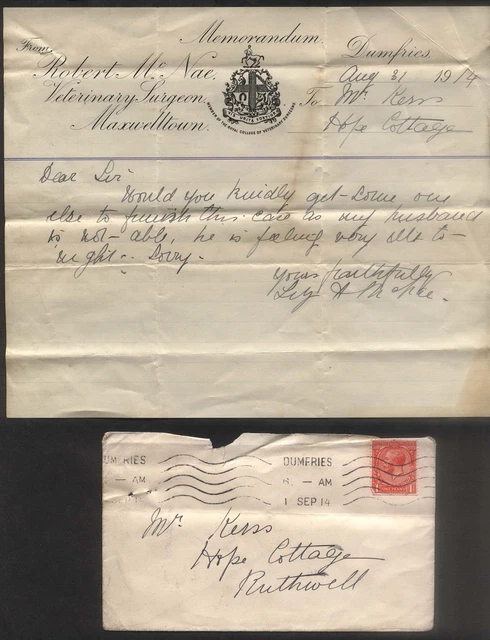 Memorandum.
From
Robert Mc Nae,
Veterinary Surgeon,
Maxwelltown.
MEMBER OF THE ROYAL COLLEGE OF VETERINARY SURGEONS
VIS UNITA FORTIOR
Dumfries,
Aug 31 1914
To Mr. Kerss
Hope Cottage
Dear Sir
Would you kindly get some one
else to finish this case as my husband
is not able, he is feeling very ill to-
night. Sorry.
Yours faithfully
McNae.
DUMFRIES
- AM
DUMFRIES
- AM
1 SEP 14
ONE PENNY
Mr. Kerss
Hope Cottage
Ruthwell